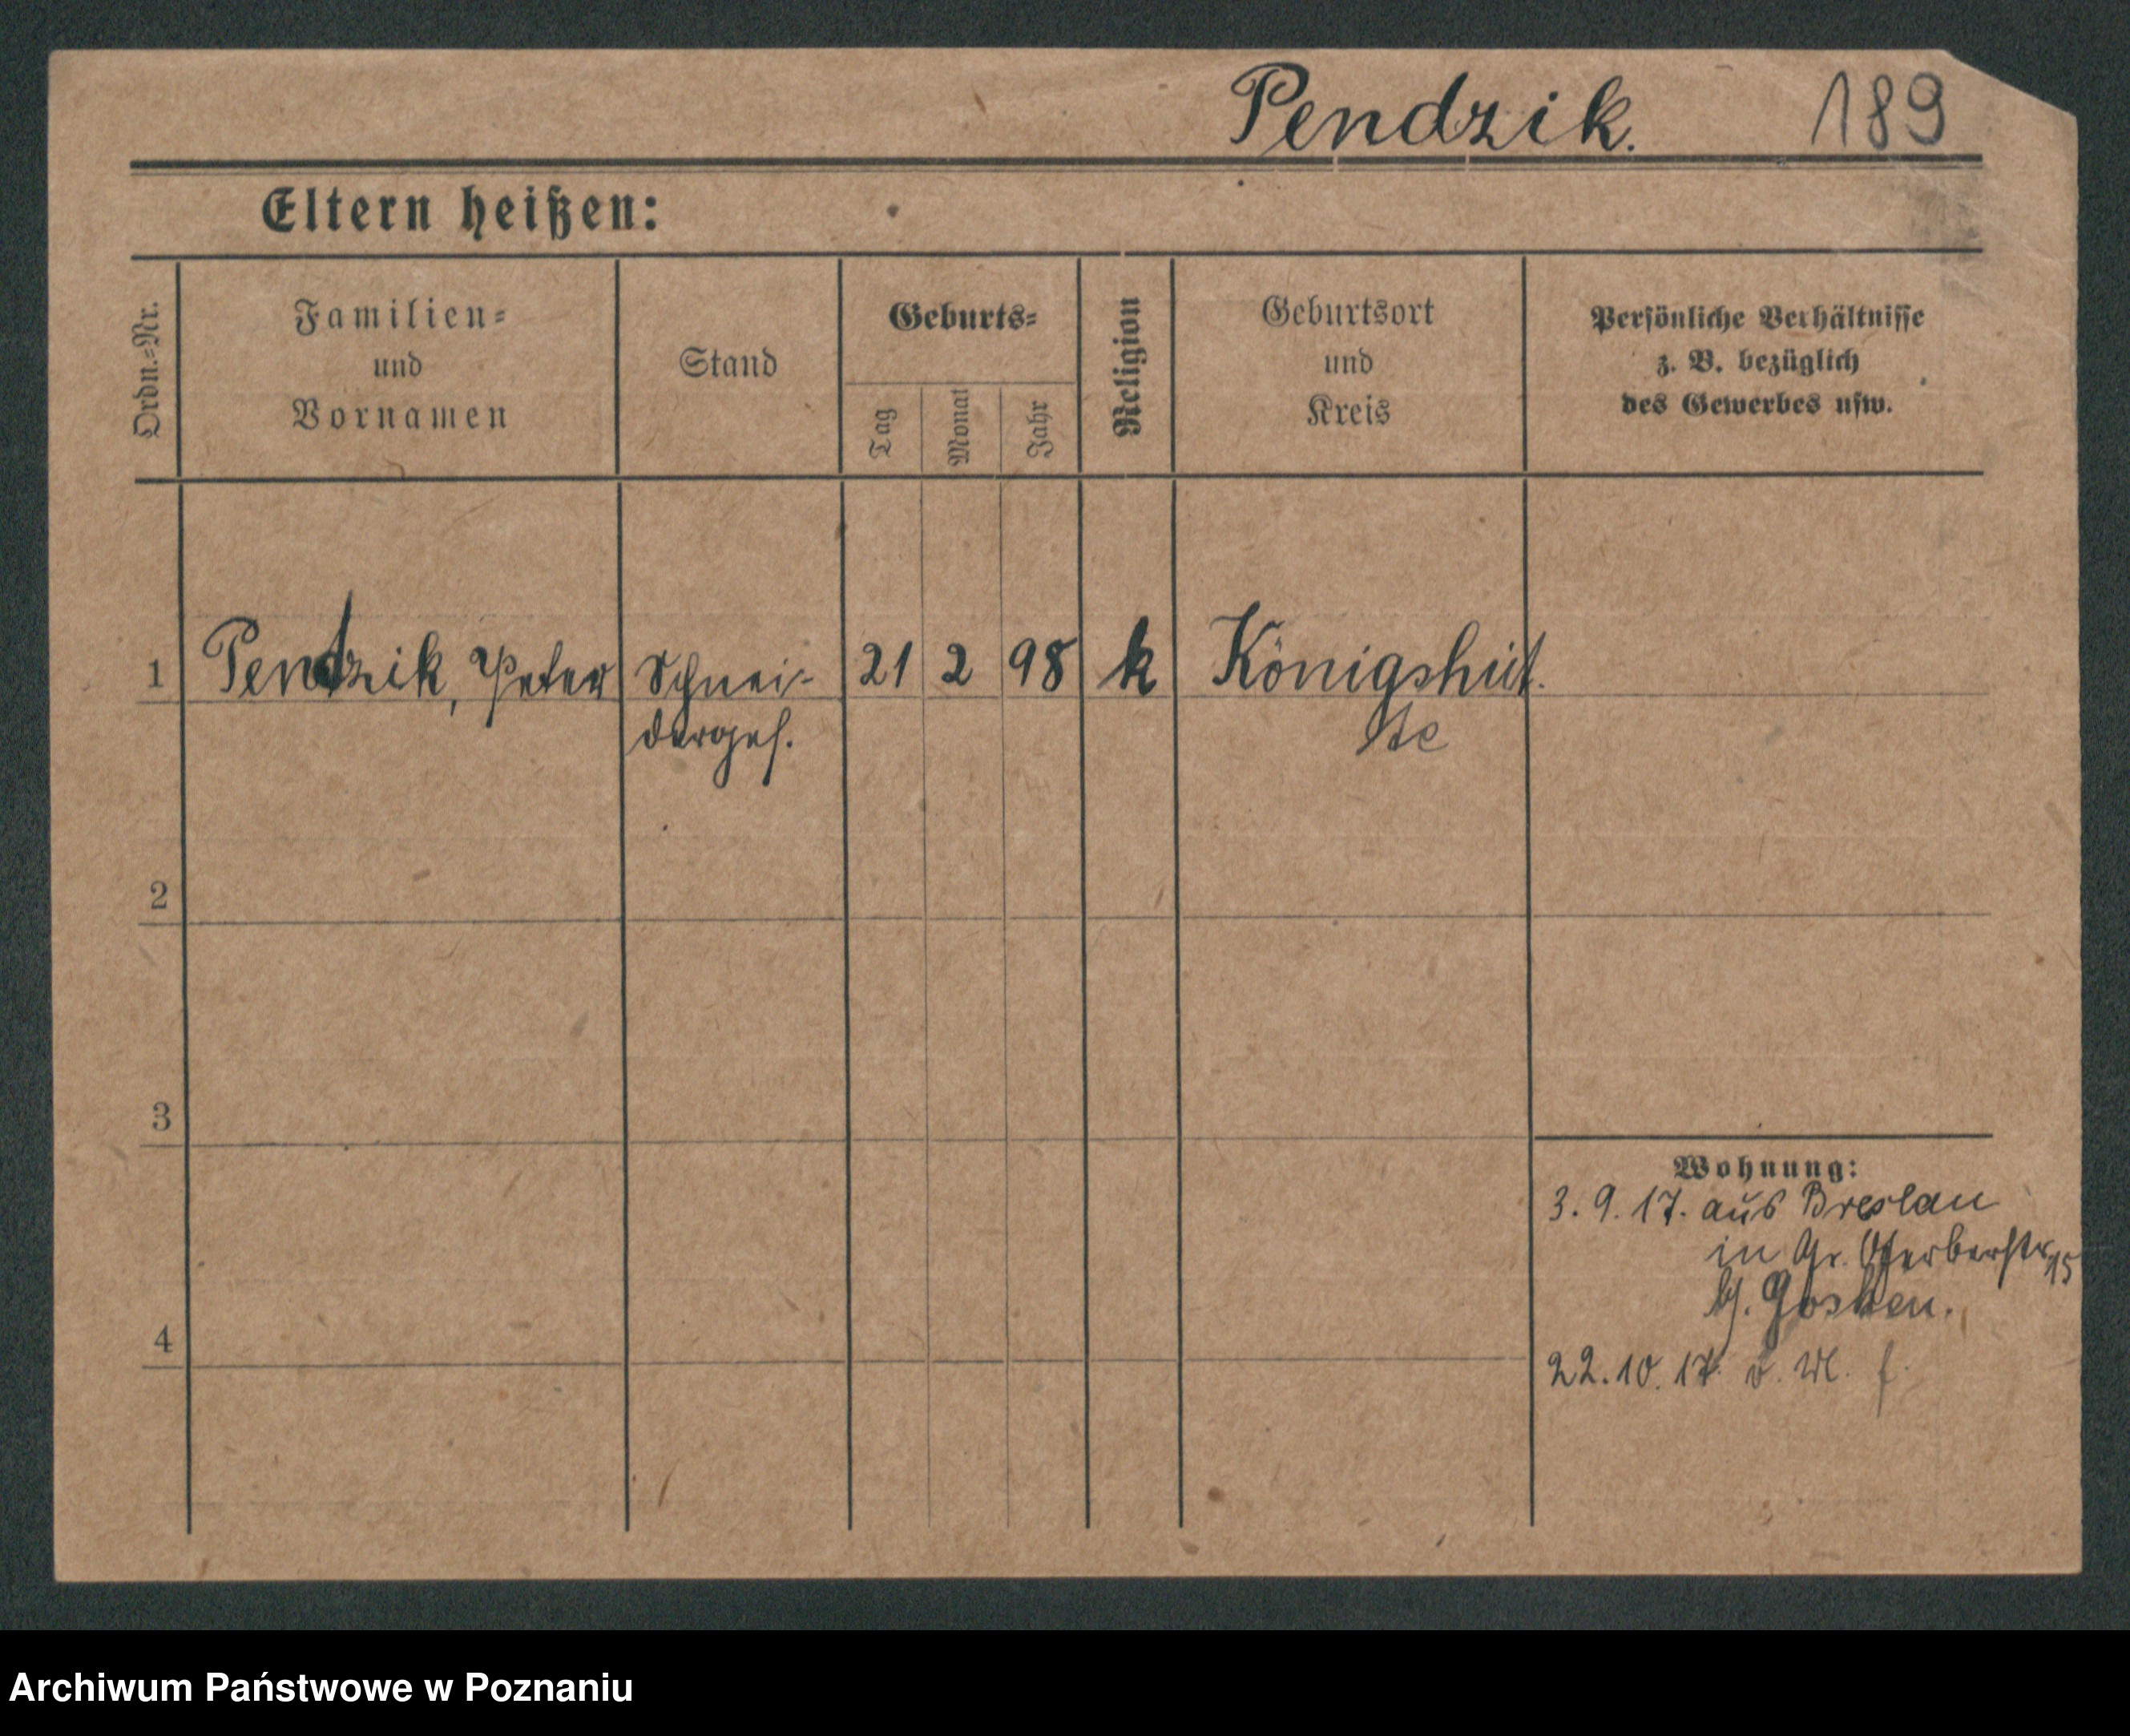 Pendzik. 189
Eltern heißen:
Ordn.-Nr.
Familien-
und
Vornamen
Stand
Geburts-
Tag
Monat
Jahr
Religion
Geburtsort
und
Kreis
Persönliche Verhältnisse
z. B. bezüglich
des Gewerbes usw.
1 Pendzik, Peter Schnei- 21 2 98 k Königshüt.
derges. te
2
3
Wohnung:
3. 9. 17. aus Breslau
in Gr. Gerberstr. 15
b/.
4
22. 10. 17. v.
Archiwum Państwowe w Poznaniu